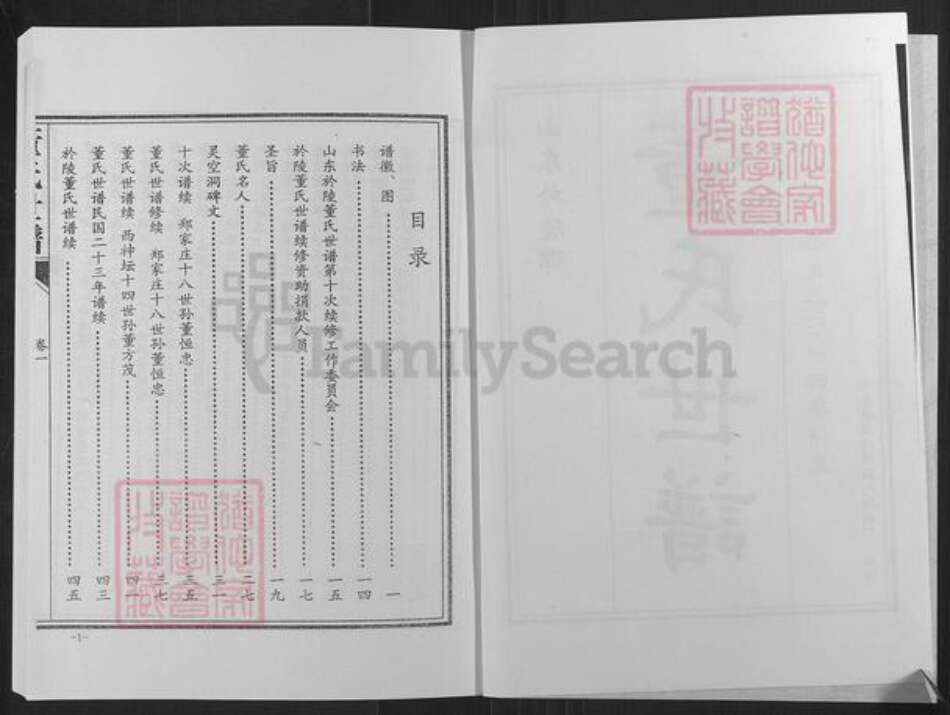 目录
谱徽、图 一
书法 一四
山东於陵董氏世谱第十次续修工作委员会 一五
於陵董氏世谱续修资助捐款人员 一七
圣旨 一九
董氏名人 二七
灵空洞碑文 三一
十次谱续 郑家庄十八世孙董恒忠 三五
董氏世谱修续 郑家庄十八世孙董恒忠 三七
董氏世谱续 西神坛十四世孙董方茂 四一
董氏世谱民国二十三年谱续 四三
於陵董氏世谱续 四五
卷一
-1-
FamilySearch